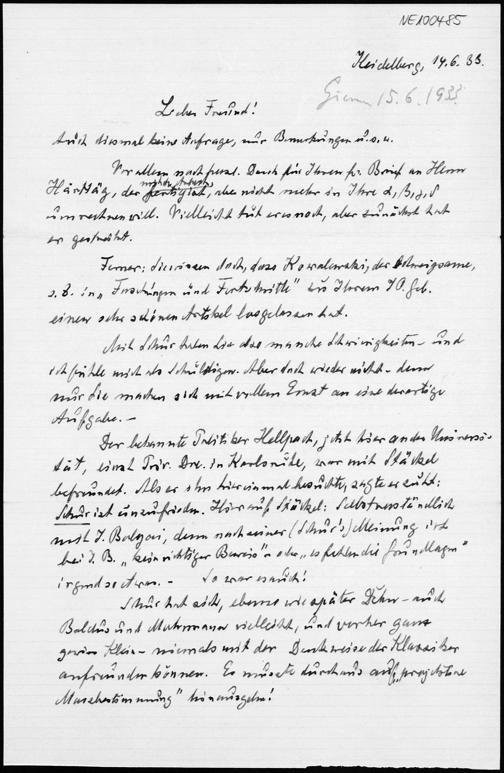 NE100485
Heidelberg, 14.6.33.
15.6.1933
Lieber Freund!
Auch diesmal keine Anfrage, nur Bemerkungen u.s.w.
Vor allem noch Dank für Ihren Brief an Herrn
Härtläg, der fertig ist, aber nicht mehr in Ihre α, β, γ, δ
umrechnen will. Vielleicht tut er es noch, aber zunächst hat
er gestreikt.
Ferner: Sie wissen doch, dass Kowalewski, der Schweigsame,
z. B. in "Forschungen und Fortschritte" zu Ihrem 70. Geb.
einen sehr schönen Artikel losgelassen hat.
Mit Schur haben Sie das manche Schwierigkeiten – und
ich fühle mich als Schuldigen. Aber doch wieder nicht – denn
nur Sie machen sich mit vollem Ernst an eine derartige
Aufgabe. –
Der bekannte Politiker Hellpach, jetzt hier an der Universi-
tät, einst Priv. Doz. in Karlsruhe, war mit Stäckel
befreundet. Als er ihn hier einmal besuchte, sagte er zu ihm:
Schur ist unzufrieden. Hierauf Stäckel: Selbstverständlich
mit J. Bolyai, denn nach seiner (Schur's) Meinung ist
bei J. B. "kein richtiger Beweis" oder "es fehlen die Grundlagen"
irgend so etwas. – So war es auch!
Schur hat sich, ebenso wie später Dehn – auch
Baldus und Mohrmann vielleicht, und vorher ganz
gewiss Klein – niemals mit der Denkweise der Klassiker
anfreunden können. Es musste durchaus auf "projektive
Massbestimmung" hinausgehn!